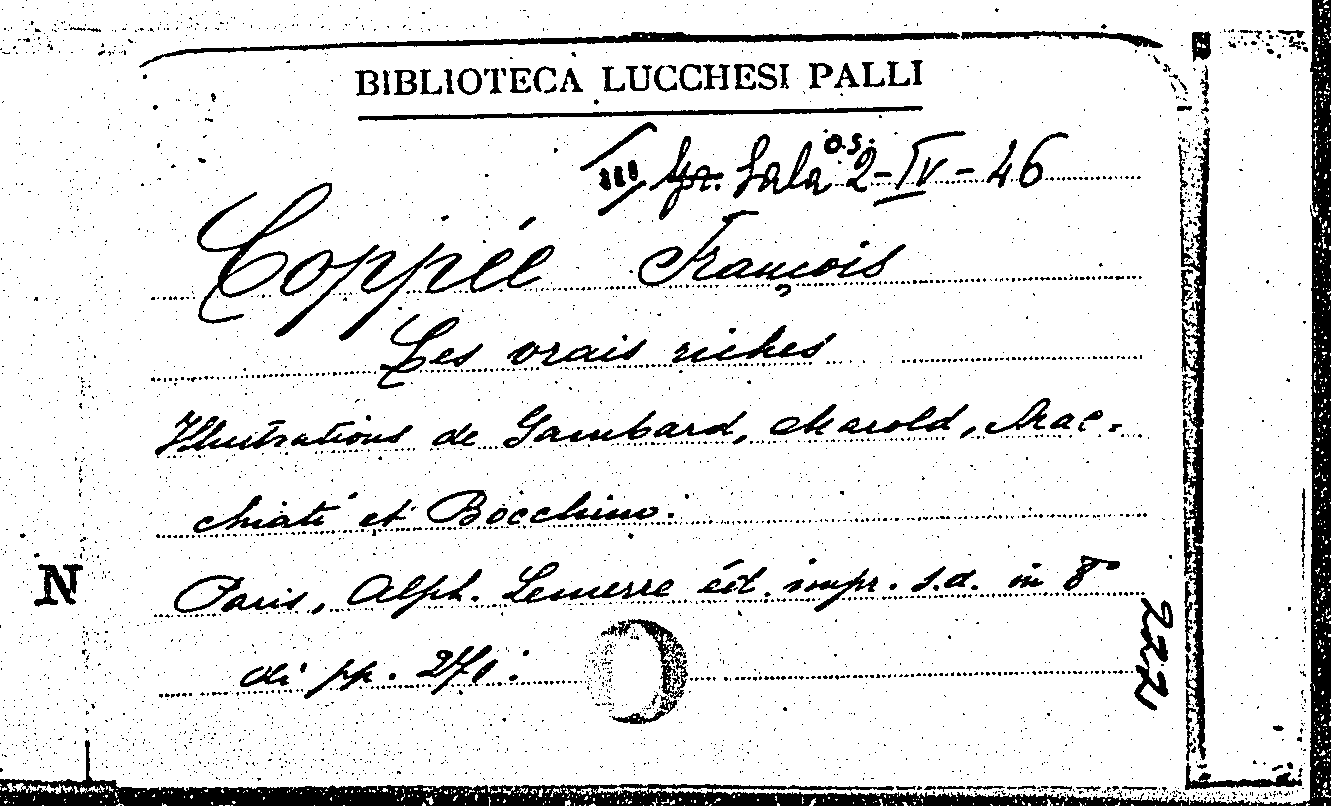 BIBLIOTECA LUCCHESI PALLI
III Gr. Sala o.s. 2-IV-46
Coppée François
Les vrais riches
Illustrations de Gambard, Marold, Mac-
chiati et Bocchino.
Paris, Alph. Lemerre éd. impr. s.d. in 8°
di pp. 271.
N